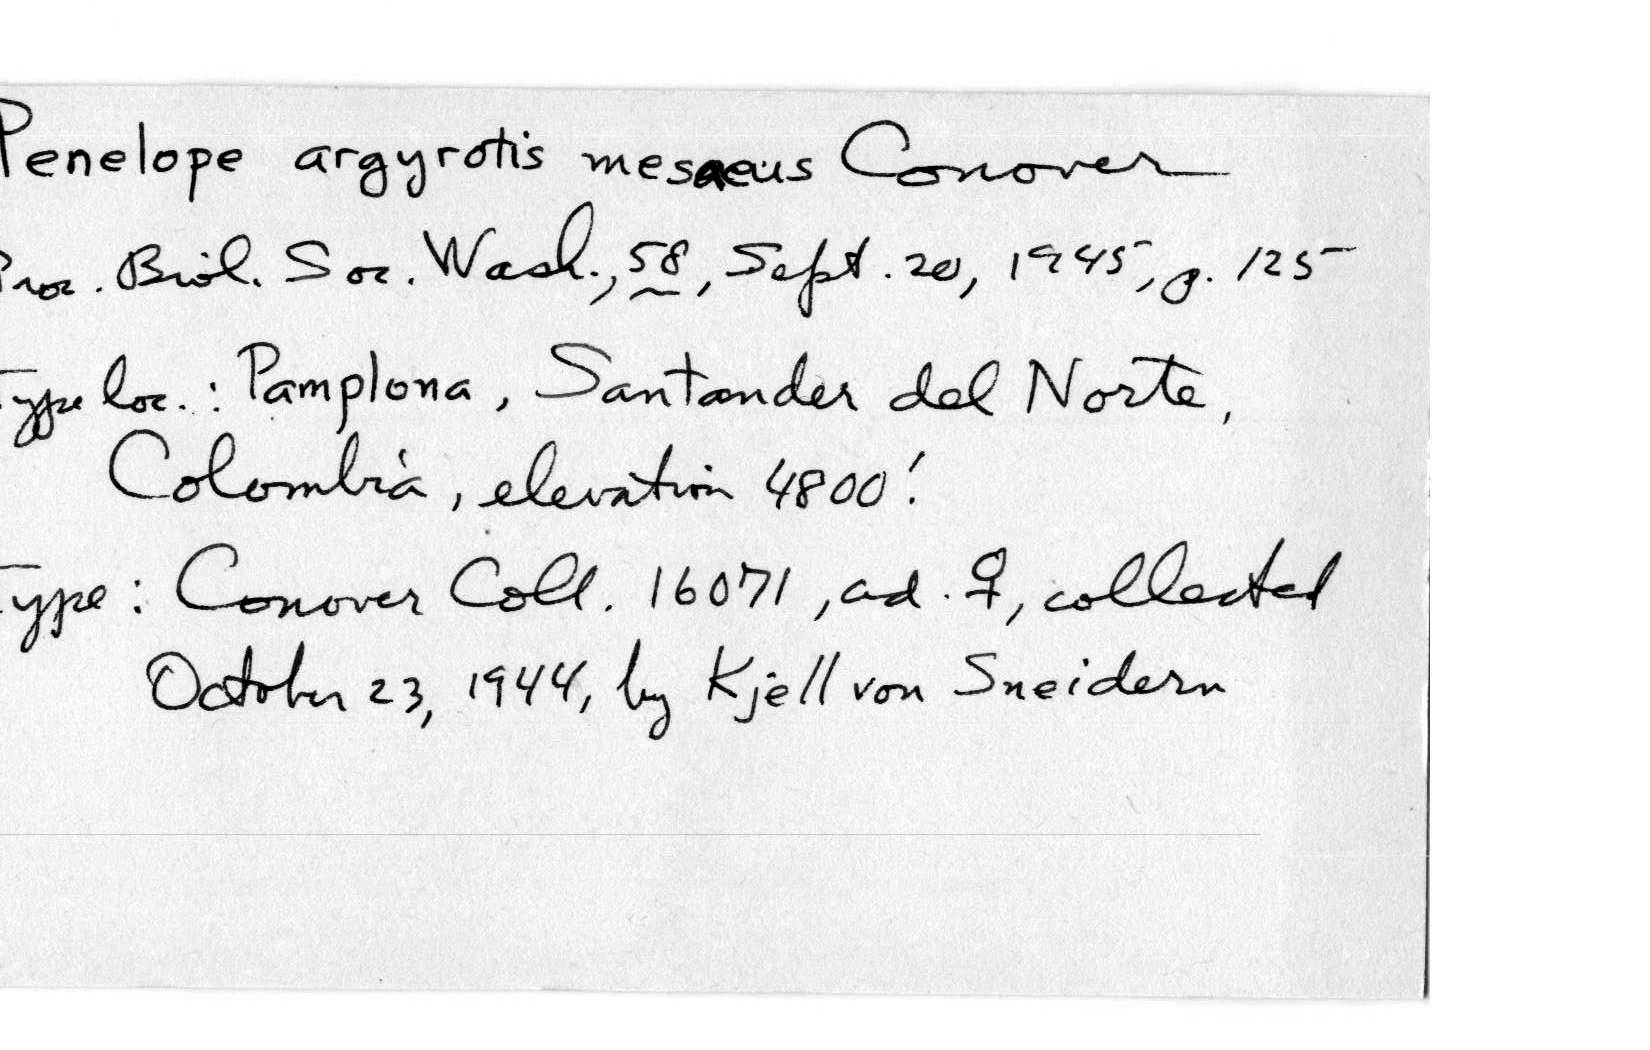 Penelope argyrotis mesaeus Conover
Proc. Biol. Soc. Wash., 58, Sept. 20, 1945, p. 125
Type loc.: Pamplona, Santander del Norte,
Colombia, elevation 4800'.
Type: Conover Coll. 16071, ad. ♀, collected
October 23, 1944, by Kjell von Sneidern